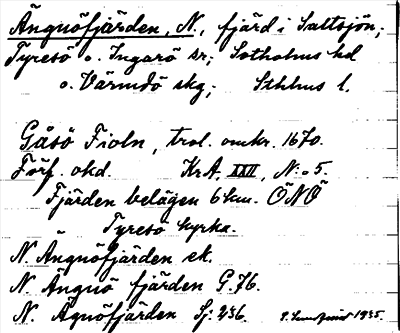 Ängnöfjärden, N., fjärd i Saltsjön;
Tyresö o. Ingarö sr; Sotholms hd
o. Värmdö skg; Sthlms l.
Gåsö Fioln, trol. omkr. 1670.
Förf. okd. KrA, XXII, N:o 5.
Fjärden belägen 6 km. ÖNÖ
Tyresö kyrka.
N. Ängnöfjärden ek.
N. Ängnö fjärden G.76.
N. Agnöfjärden Sj. 236. 1935.